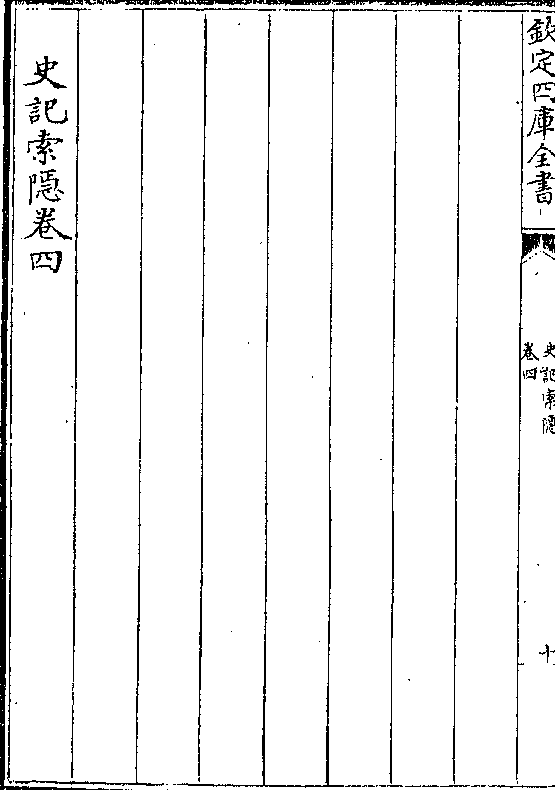 欽定四庫全書
史記索隱
卷四
十
史記索隱卷四